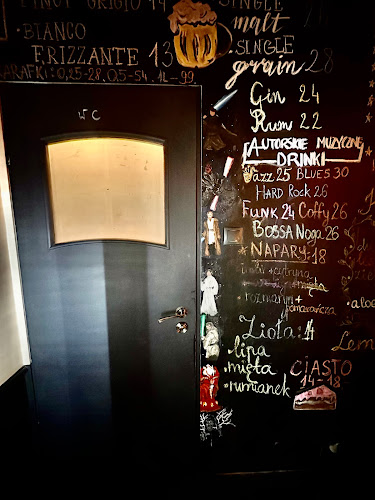 PINOT GRIGIO 14
BIANCO
FRIZZANTE 13
KARAFKI: 0,25-28, 0,5-54, 1L-99,
SINGLE
malt
SINGLE
grain 28
WC
Gin 24
Rum 22
AUTORSKIE MUZYCZNE
DRINKI
JAZZ 25 BLUES 30
HARD ROCK 26
FUNK 24 COFFY 26
BOSSA NOGA 26
NAPARY: 18
imbir + cytryna
rozmaryn +
pomarańcza
Zioła: 14
• lipa
• mięta
• rumianek
CIASTO
14-18